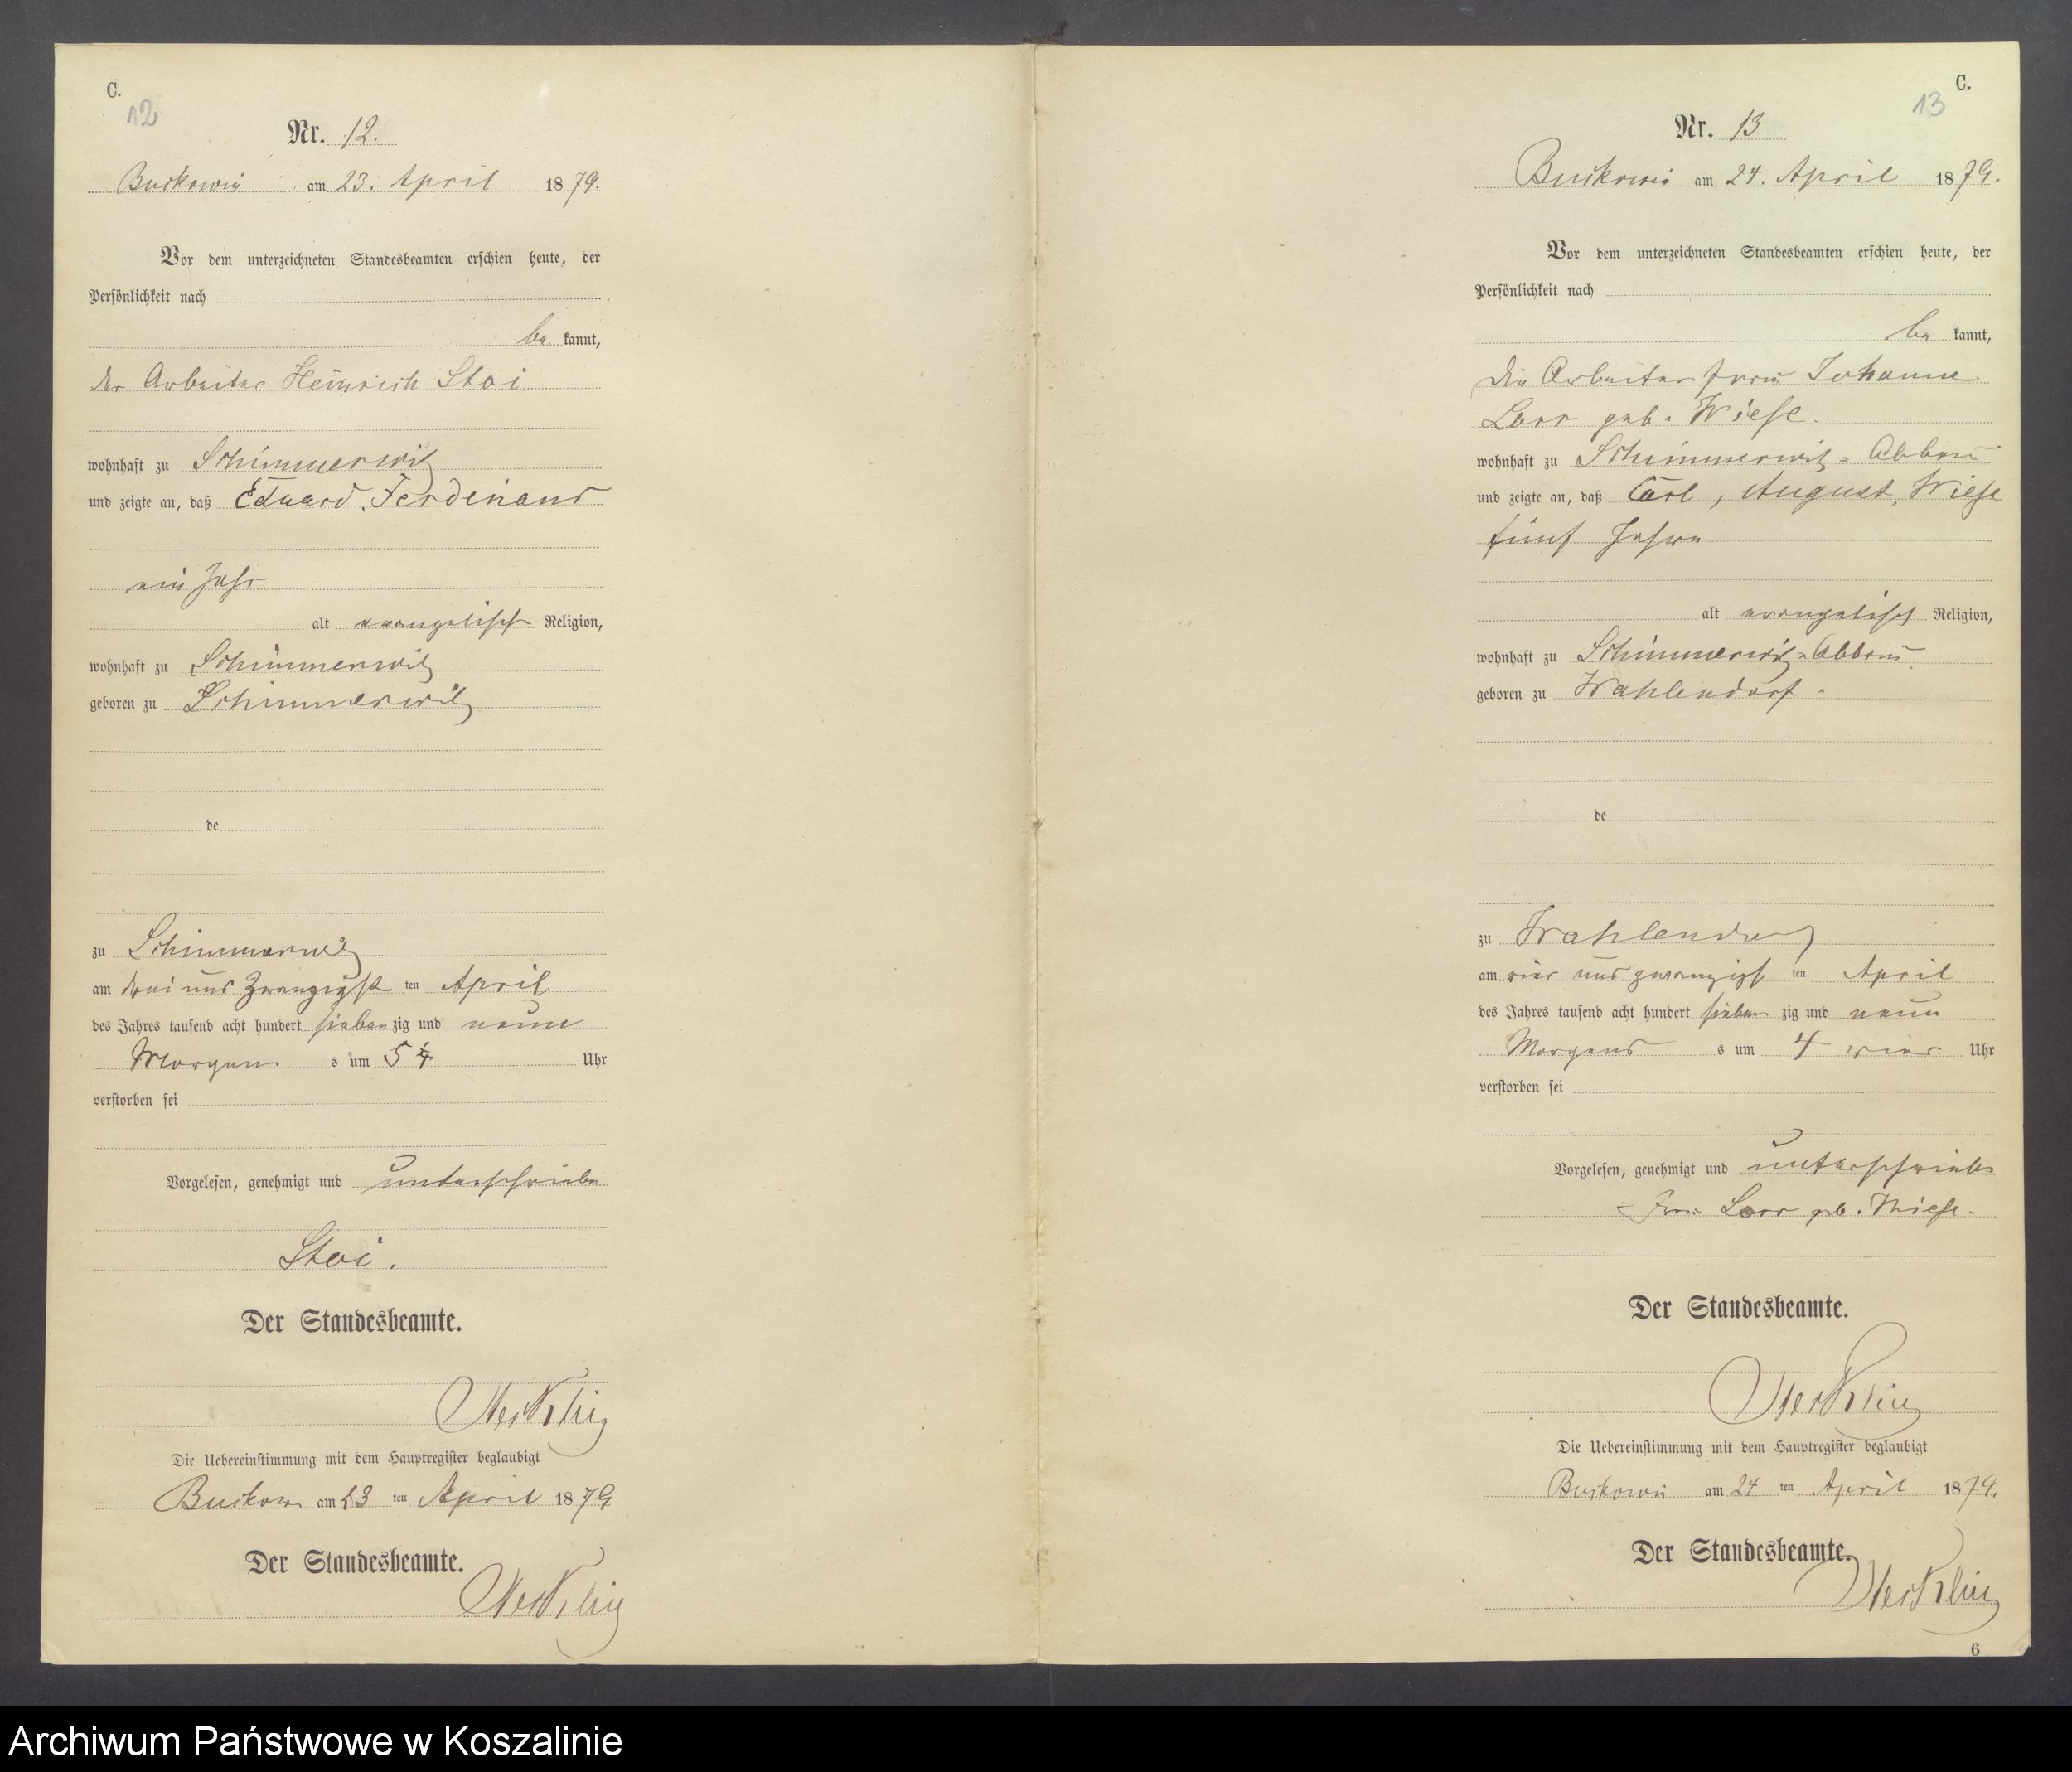 C.
12
Nr. 12.
Buckowin am 23. April 1879.
Vor dem unterzeichneten Standesbeamten erschien heute, der
Persönlichkeit nach
be kannt,
der Arbeiter Heinrich Stoi
wohnhaft zu Schimmerwitz
und zeigte an, daß Eduard Ferdinand
ein Jahr
alt evangelisch Religion,
wohnhaft zu Schimmerwitz
geboren zu Schimmerwitz
de
zu Schimmerwitz
am drei und Zwanzigst ten April
des Jahres tausend acht hundert sieben zig und neun
Morgen s um 5 ¼ Uhr
verstorben sei
Vorgelesen, genehmigt und unterschrieben
Stoi.
Der Standesbeamte.
Die Uebereinstimmung mit dem Hauptregister beglaubigt
Buckow am 23 ten April 1879
Der Standesbeamte.
C.
13
Nr. 13
Buckowin am 24. April 1879.
Vor dem unterzeichneten Standesbeamten erschien heute, der
Persönlichkeit nach
be kannt,
die Arbeiter frau Johanne
geb. Wiese.
wohnhaft zu Schimmerwitz - Abbau
und zeigte an, daß Carl, August, Wiese
fünf Jahre
alt evangelisch Religion,
wohnhaft zu Schimmerwitz - Abbau
geboren zu Wahlendorf.
de
zu Wahlendorf
am vier und zwanzigst ten April
des Jahres tausend acht hundert sieben zig und neun
Morgens s um 4 vier Uhr
verstorben sei
Vorgelesen, genehmigt und unterschrieben
Frau geb. Wiese.
Der Standesbeamte.
Die Uebereinstimmung mit dem Hauptregister beglaubigt
Buckowin am 24 ten April 1879.
Der Standesbeamte.
6
Archiwum Państwowe w Koszalinie